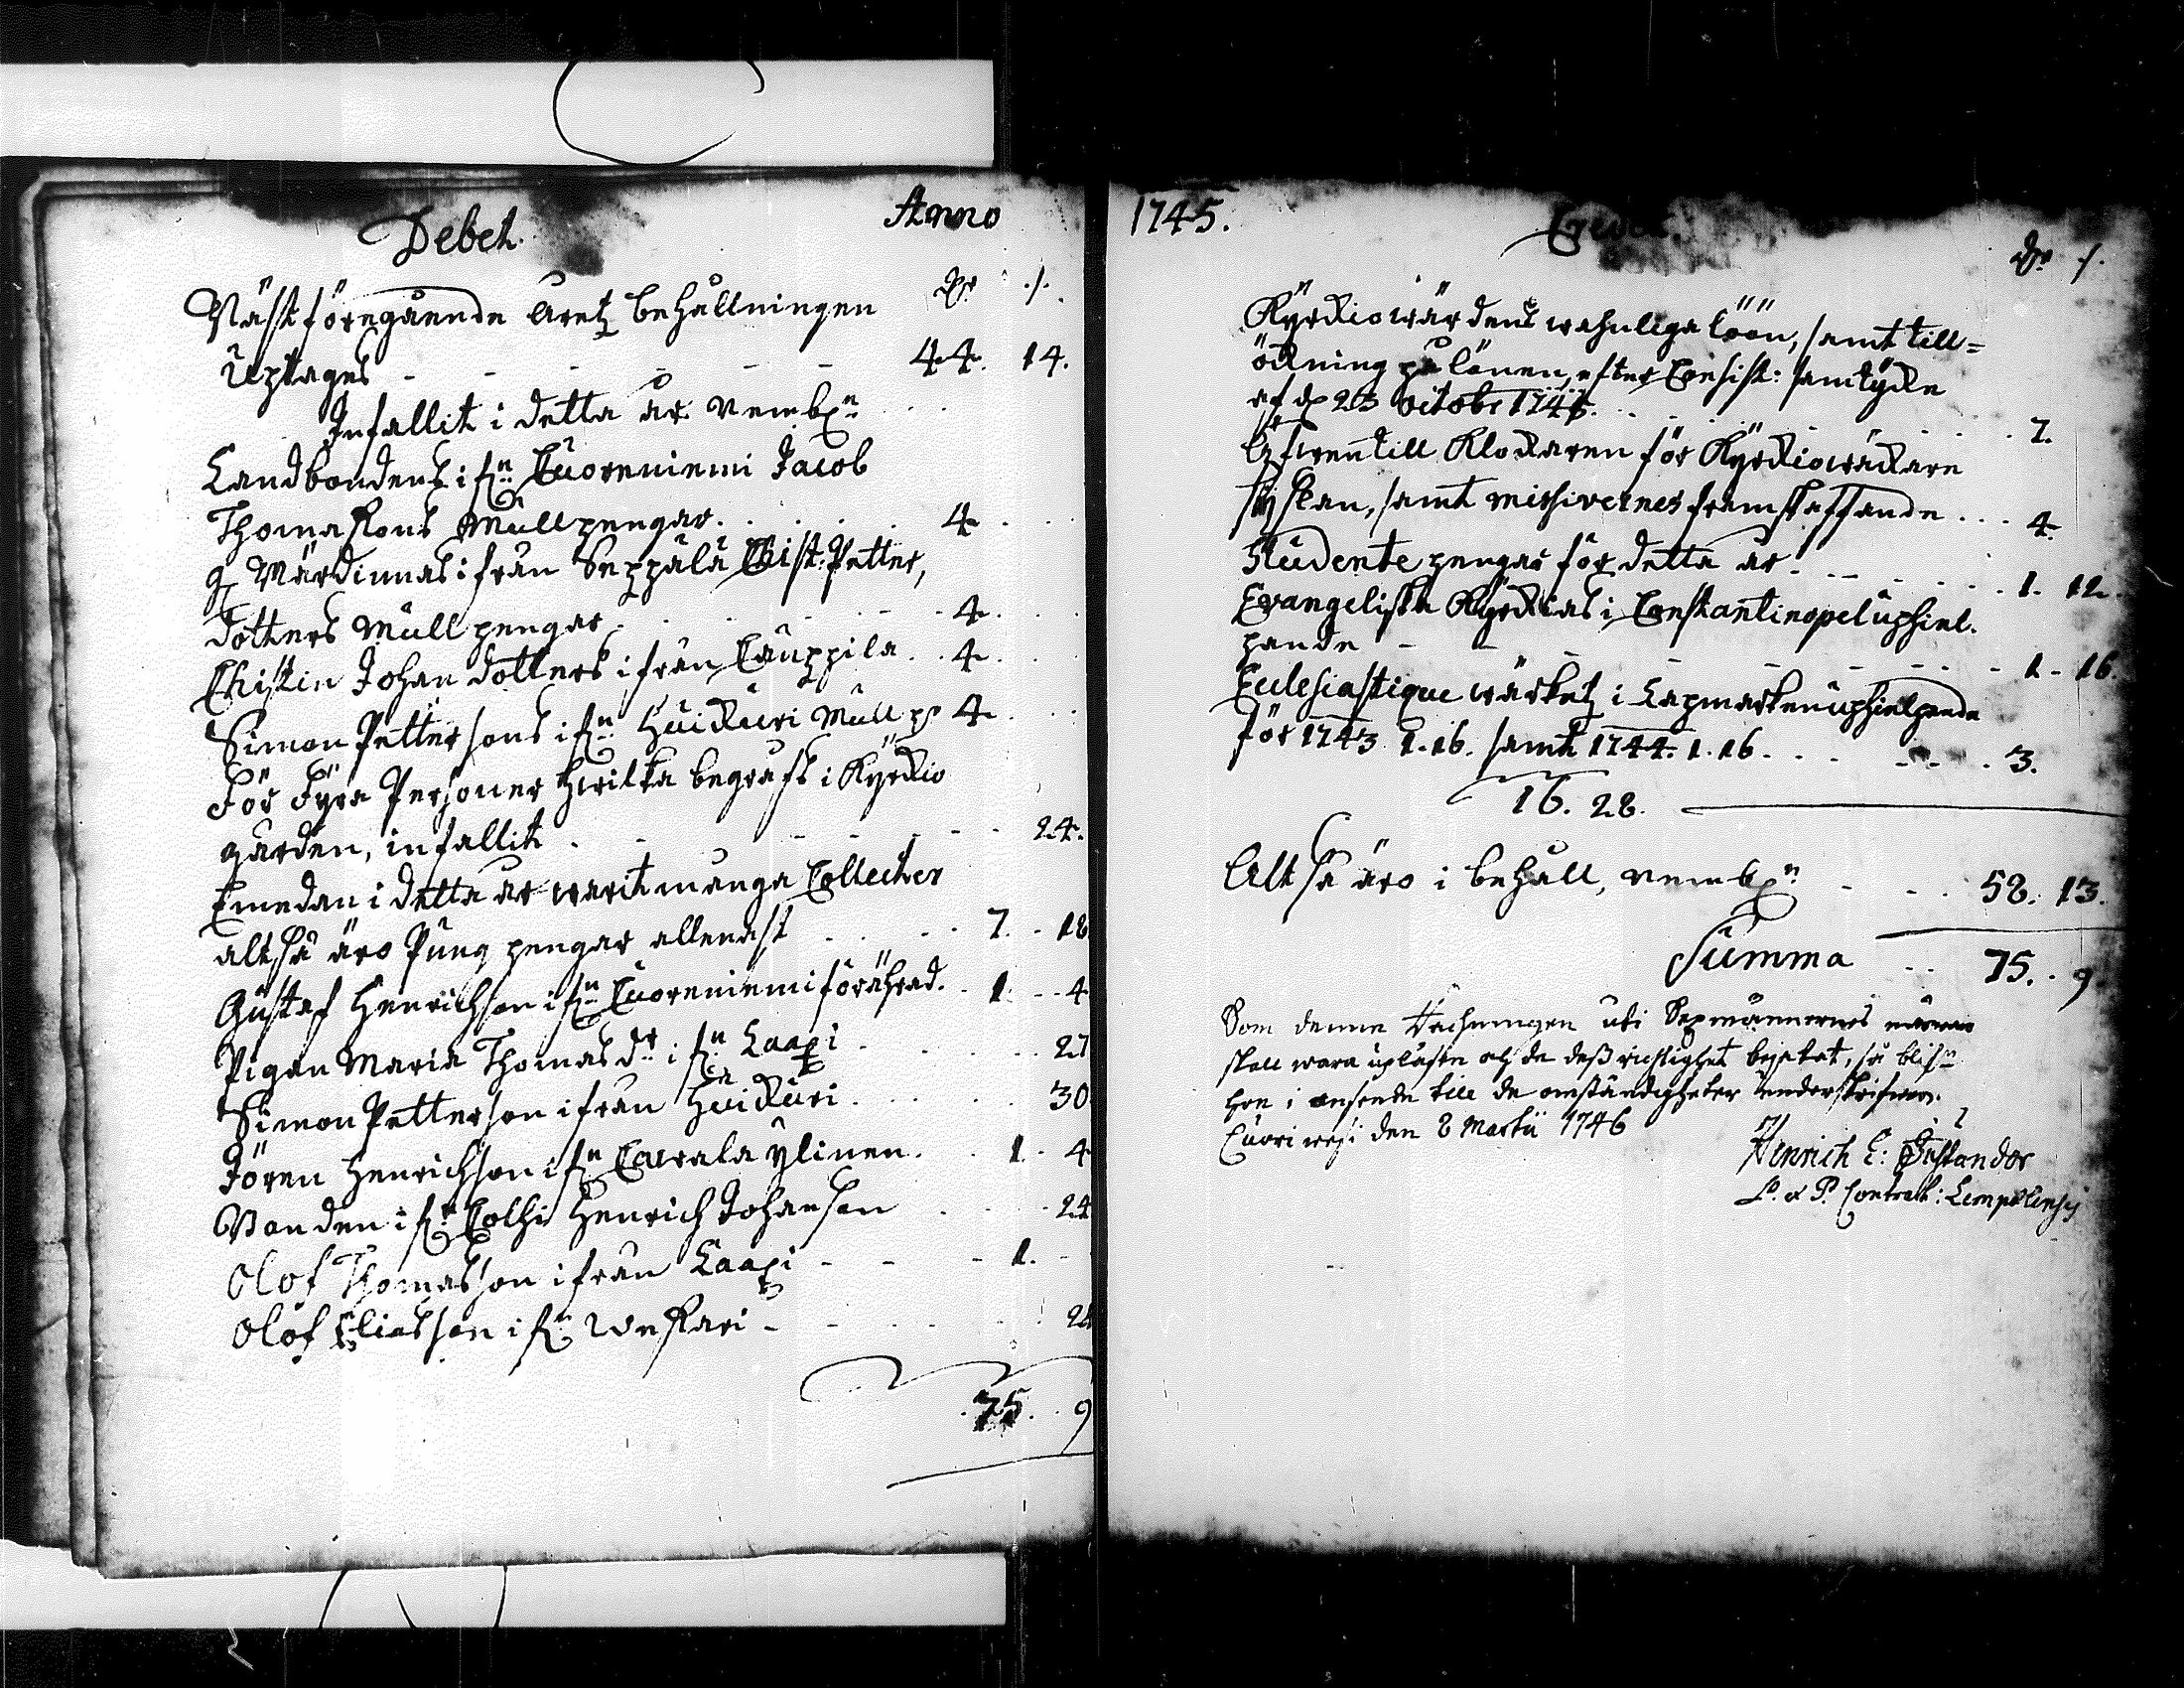 Debet Anno
Dr ./.
Näst föregående åretz behållningen
Uptages 44. 14.
Infallit i detta år nembl:n
Landbondens if:n Cuoreniemi Jacob
Thomassons Mullpengar 4
g. Värdinnas ifrån Seppälä Christ: Petter,
dotters Mullpengar 4
Christin Johan dotters ifrån Cauppila 4
Simon Pettersons if:n Huikuri Mull pr 4
För Fyra Personer hwilka begrafs i Kyrkio
gården, infallit 24.
Emedan i detta år warit många Collecter
altså äro Pung pengar allenast 7. 18
Gustaf Henrichson if:n Cuoreniemi förährad. 1. 4
Pigan Maria Thomas dr if:n Laapi 27
Simon Petterson ifrån Huikuri 30
Jören Henrichson if:n Cawala ylinen 1. 4
Bonden if:n Colhi Henrich Johanson 24
Olof Thomasson ifrån Laapi 1.
Olof Eliasson if:n Weskari 24
75. 9
1745. Credit.
Dr ./.
Kyrkiowärdens wahnliga löön, samt till=
ökning på lönen, efter Consist: samtycke
af d. 23 octobr 1745. 7.
Gifwen till Klockaren för Kyrkiowäckare
sysslan, samt missivernes framskaffande 4.
Studente pengar för detta år 1. 12.
Evangeliska Kyrkias i Constantinopel uphiel.
pande 1. 16.
Ecclesiastique wärketz i Lapmarken uphielpande
för 1743 1.16. samt 1744. 1.16. 3.
16. 28.
Altså äro i behåll, nembl:n 58. 13.
Summa 75. 9
Som denne Rächningen uti Sexmännernes närwaro
skall wara upläsen och de dess richtighet bejakat, så blif:n
hon i anseende till de omständigheter underskrifwen.
Cuoriwesi den 8 Martii 1746
Henrich
P. & P. Contract: Lempelensis